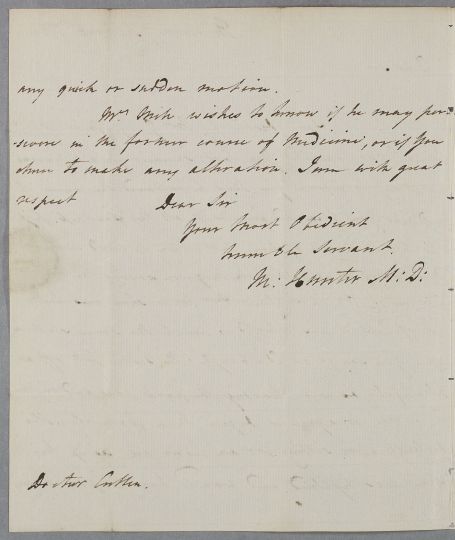 any quick or sudden motion.
Mrs wishes to know if he may per-
severe in the former course of Medicine, or if you
chuse to make any altration. I am with great
respect Dear Sir
Your Most Obedient
humble Servant.
M: Hunter M: D:
Doctor Cullen.